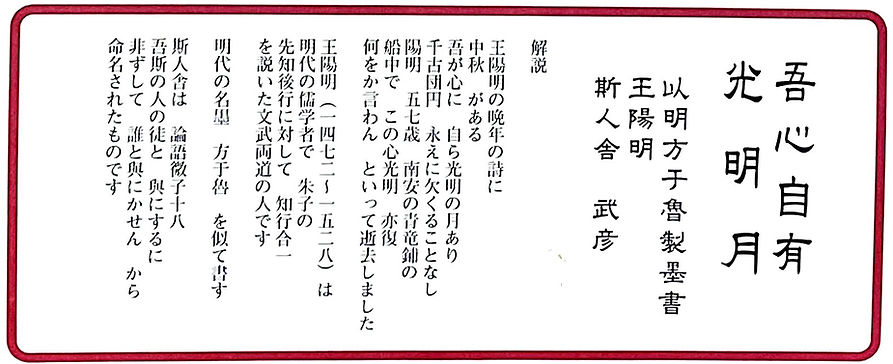 吾心自有
光明月
以明方于魯製墨書
王陽明
斯人舎　武彦
解説
王陽明の晩年の詩に
中秋　がある
吾が心に　自ら光明の月あり
千古団円　永えに欠くることなし
陽明　五七歳　南安の青竜鋪の
船中で　この心光明　亦復
何をか言わん　といって逝去しました
王陽明（一四七二～一五二八）は
明代の儒学者で　朱子の
先知後行に対して　知行合一
を説いた文武両道の人です
明代の名墨　方于魯　を似て書す
斯人舎は　論語微子十八
吾斯の人の徒と　與にするに
非ずして　誰と與にかせん　から
命名されたものです